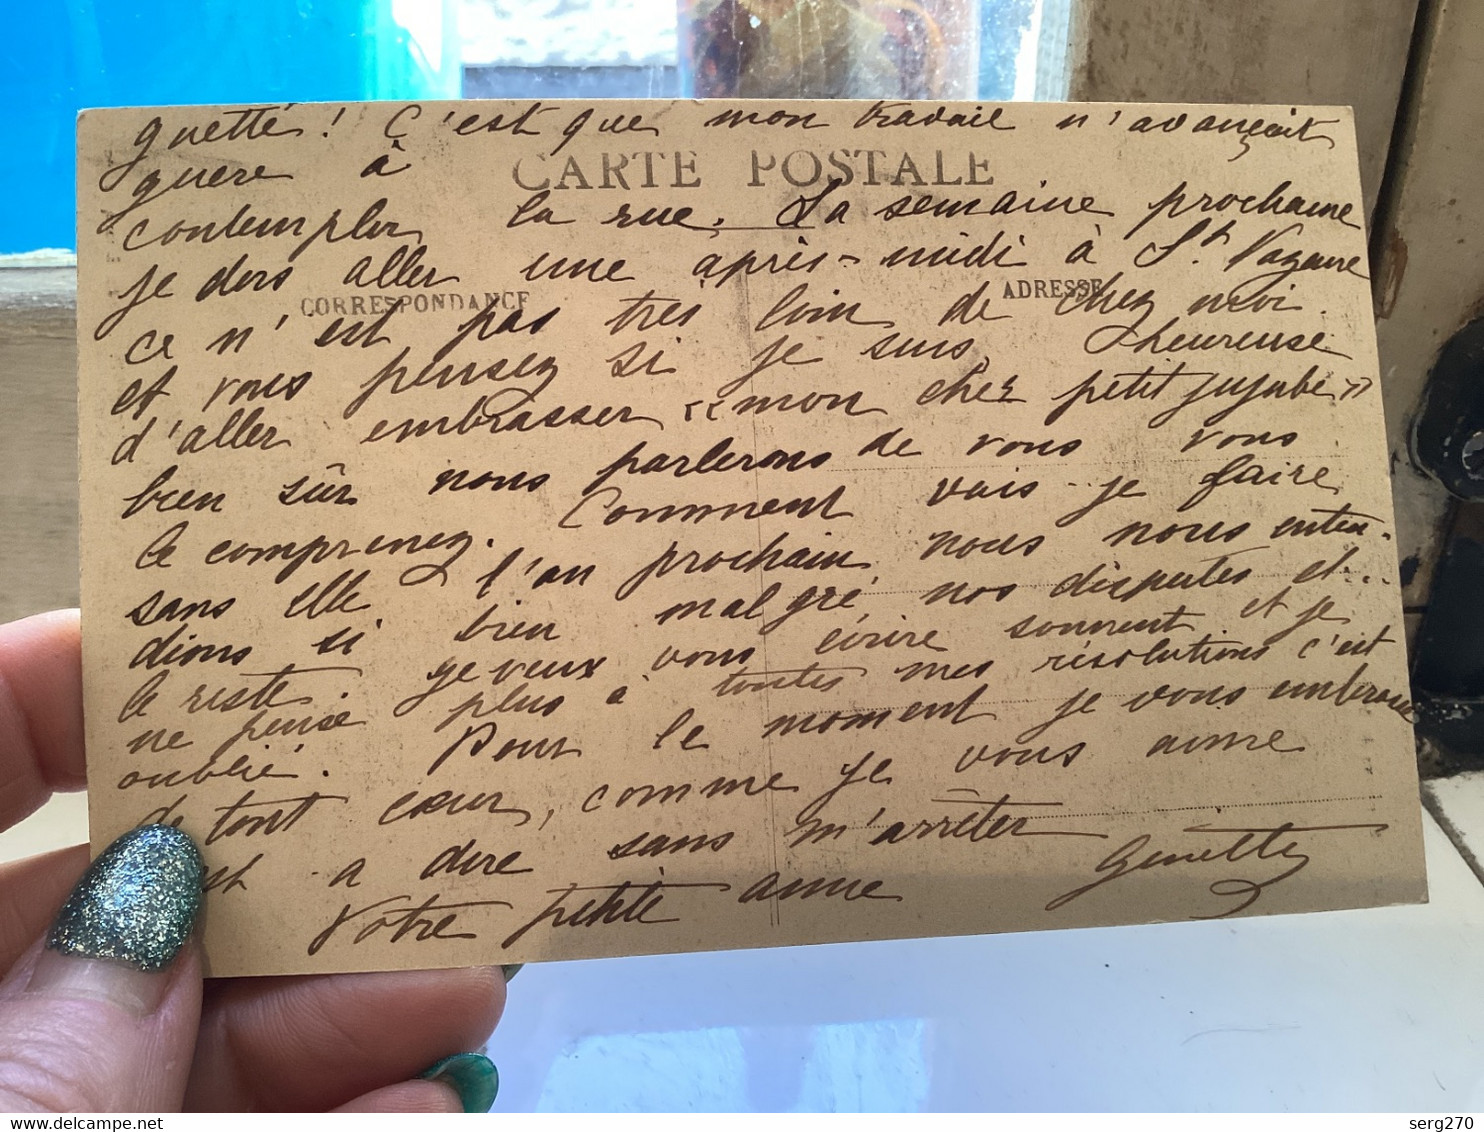 guetté ! C'est que mon travail n'avançait
guère à
CARTE POSTALE
contempler la rue. La semaine prochaine
je dois aller une après-midi à St Nazaire
CORRESPONDANCE
ADRESSE
ce n'est pas très loin de chez moi.
et vous pensez si je suis heureuse
d'aller embrasser "mon cher petit jujube"
bien sûr nous parlerons de vous vous
le comprenez. Comment vais-je faire
sans elle l'an prochain nous nous enten-
dions si bien malgré nos disputes et..
le reste. je veux vous écrire souvent et je
ne pense plus à toutes mes résolutions c'est
oublié. Pour le moment je vous embrasse
de tout cœur, comme je vous aime
c'est à dire sans m'arrêter
Votre petite amie Ginette
delcampe.net
serg270